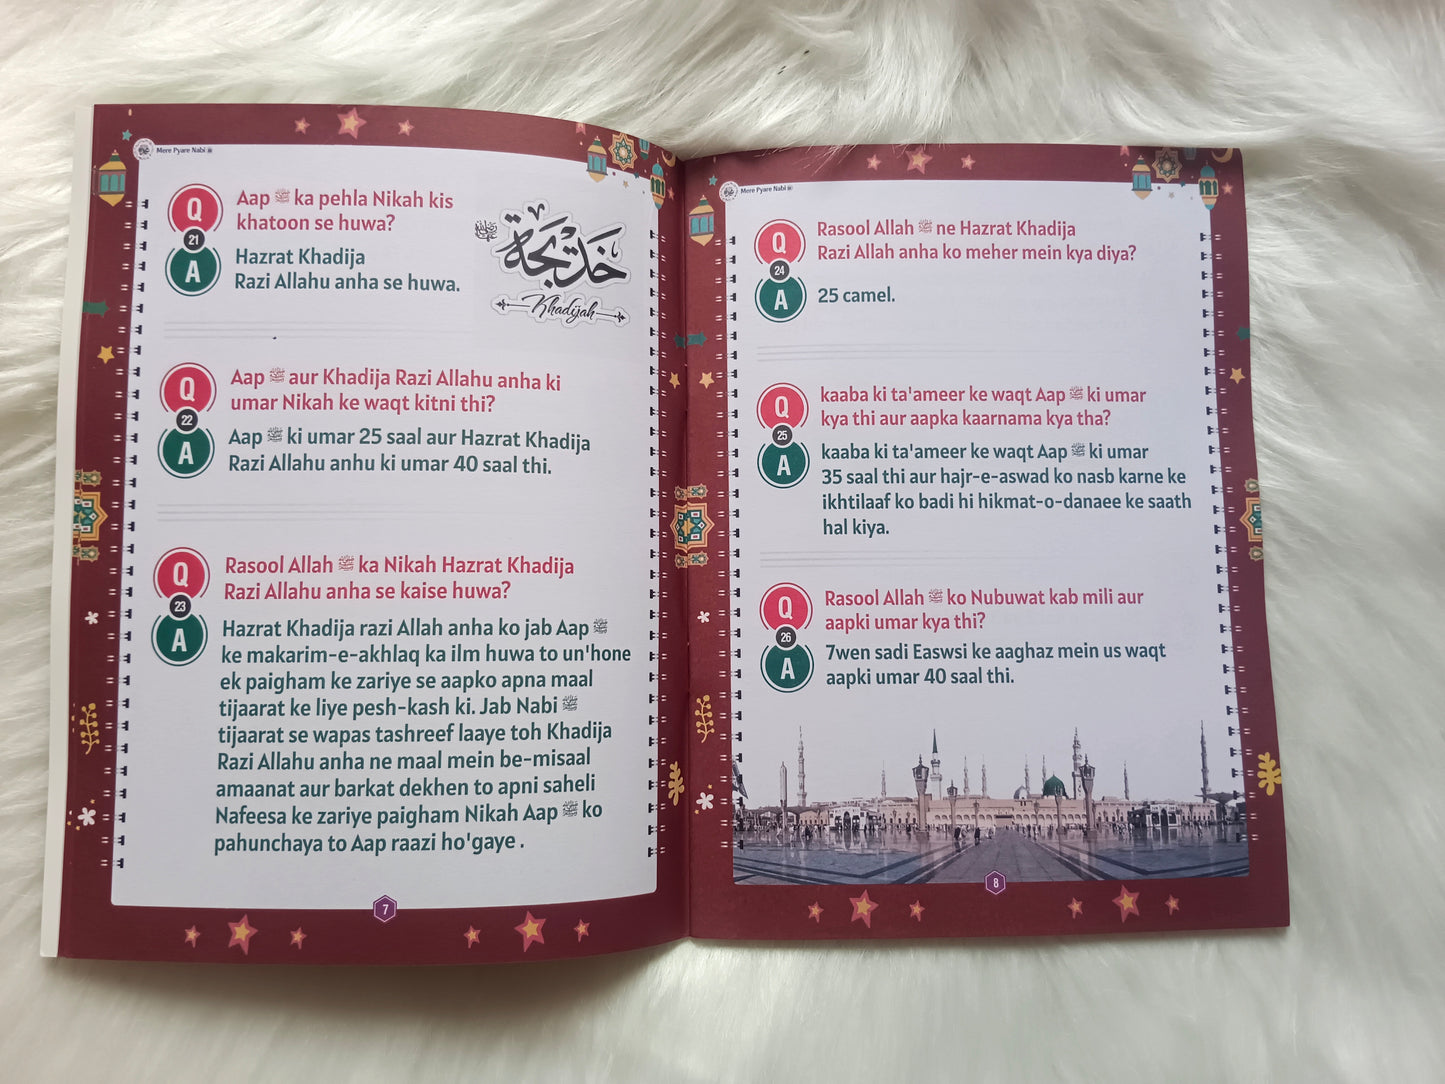 Mere Pyare Nabi ﷺ
Q
21
A
Aap ﷺ ka pehla Nikah kis
khatoon se huwa?
Hazrat Khadija
Razi Allahu anha se huwa.
خديجة
Khadijah
Q
22
A
Aap ﷺ aur Khadija Razi Allahu anha ki
umar Nikah ke waqt kitni thi?
Aap ﷺ ki umar 25 saal aur Hazrat Khadija
Razi Allahu anhu ki umar 40 saal thi.
Q
23
A
Rasool Allah ﷺ ka Nikah Hazrat Khadija
Razi Allahu anha se kaise huwa?
Hazrat Khadija razi Allah anha ko jab Aap ﷺ
ke makarim-e-akhlaq ka ilm huwa to un'hone
ek paigham ke zariye se aapko apna maal
tijaarat ke liye pesh-kash ki. Jab Nabi ﷺ
tijaarat se wapas tashreef laaye toh Khadija
Razi Allahu anha ne maal mein be-misaal
amaanat aur barkat dekhen to apni saheli
Nafeesa ke zariye paigham Nikah Aap ﷺ ko
pahunchaya to Aap raazi ho'gaye .
7
Mere Pyare Nabi ﷺ
Q
24
A
Rasool Allah ﷺ ne Hazrat Khadija
Razi Allah anha ko meher mein kya diya?
25 camel.
Q
25
A
kaaba ki ta'ameer ke waqt Aap ﷺ ki umar
kya thi aur aapka kaarnama kya tha?
kaaba ki ta'ameer ke waqt Aap ﷺ ki umar
35 saal thi aur hajr-e-aswad ko nasb karne ke
ikhtilaaf ko badi hi hikmat-o-danaee ke saath
hal kiya.
Q
26
A
Rasool Allah ﷺ ko Nubuwat kab mili aur
aapki umar kya thi?
7wen sadi Easwsi ke aaghaz mein us waqt
aapki umar 40 saal thi.
8